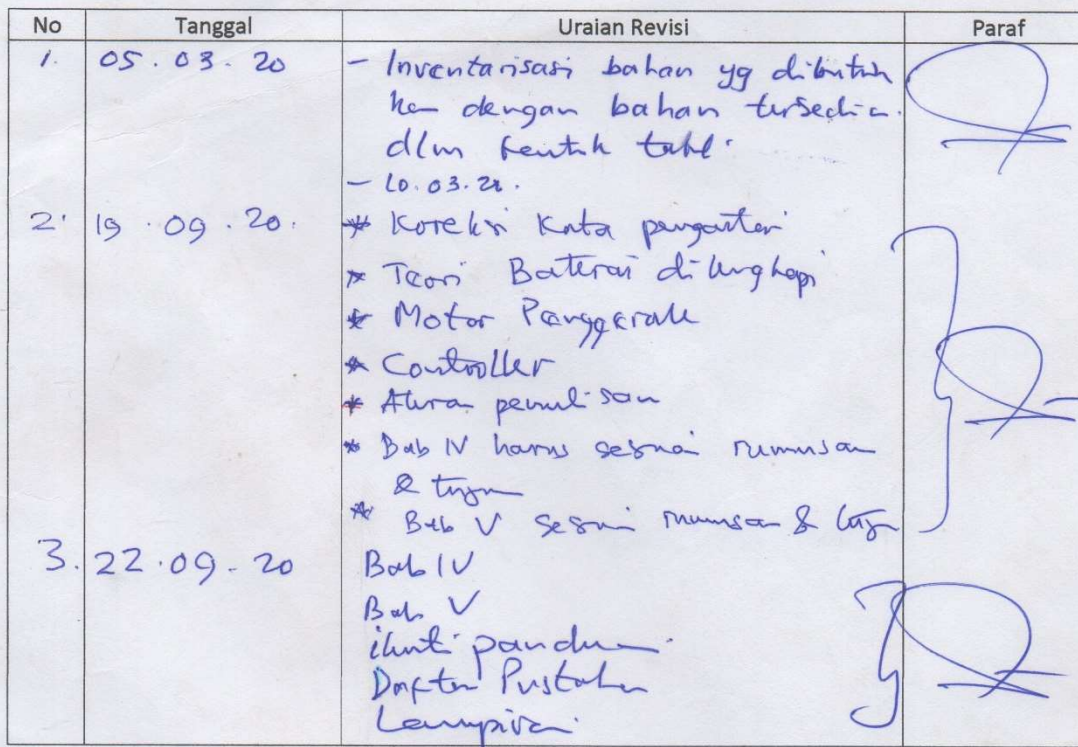 No Tanggal Uraian Revisi Paraf
1. 05.03.20 - Inventarisasi bahan yg dibutuh
kan dengan bahan tersedia.
dlm bentuk tabel.
- 10.03.20.
2. 19.09.20. * Koreksi Kata pengantar
* Teori Baterai dilengkapi
* Motor Penggerak
* Controller
* Aturan penulisan
* Bab IV harus sesuai rumusan
& tujuan
* Bab V sesuai rumusan & tujuan
3. 22.09-20 Bab IV
Bab V
ikuti panduan
Daftar Pustaka
Lampiran